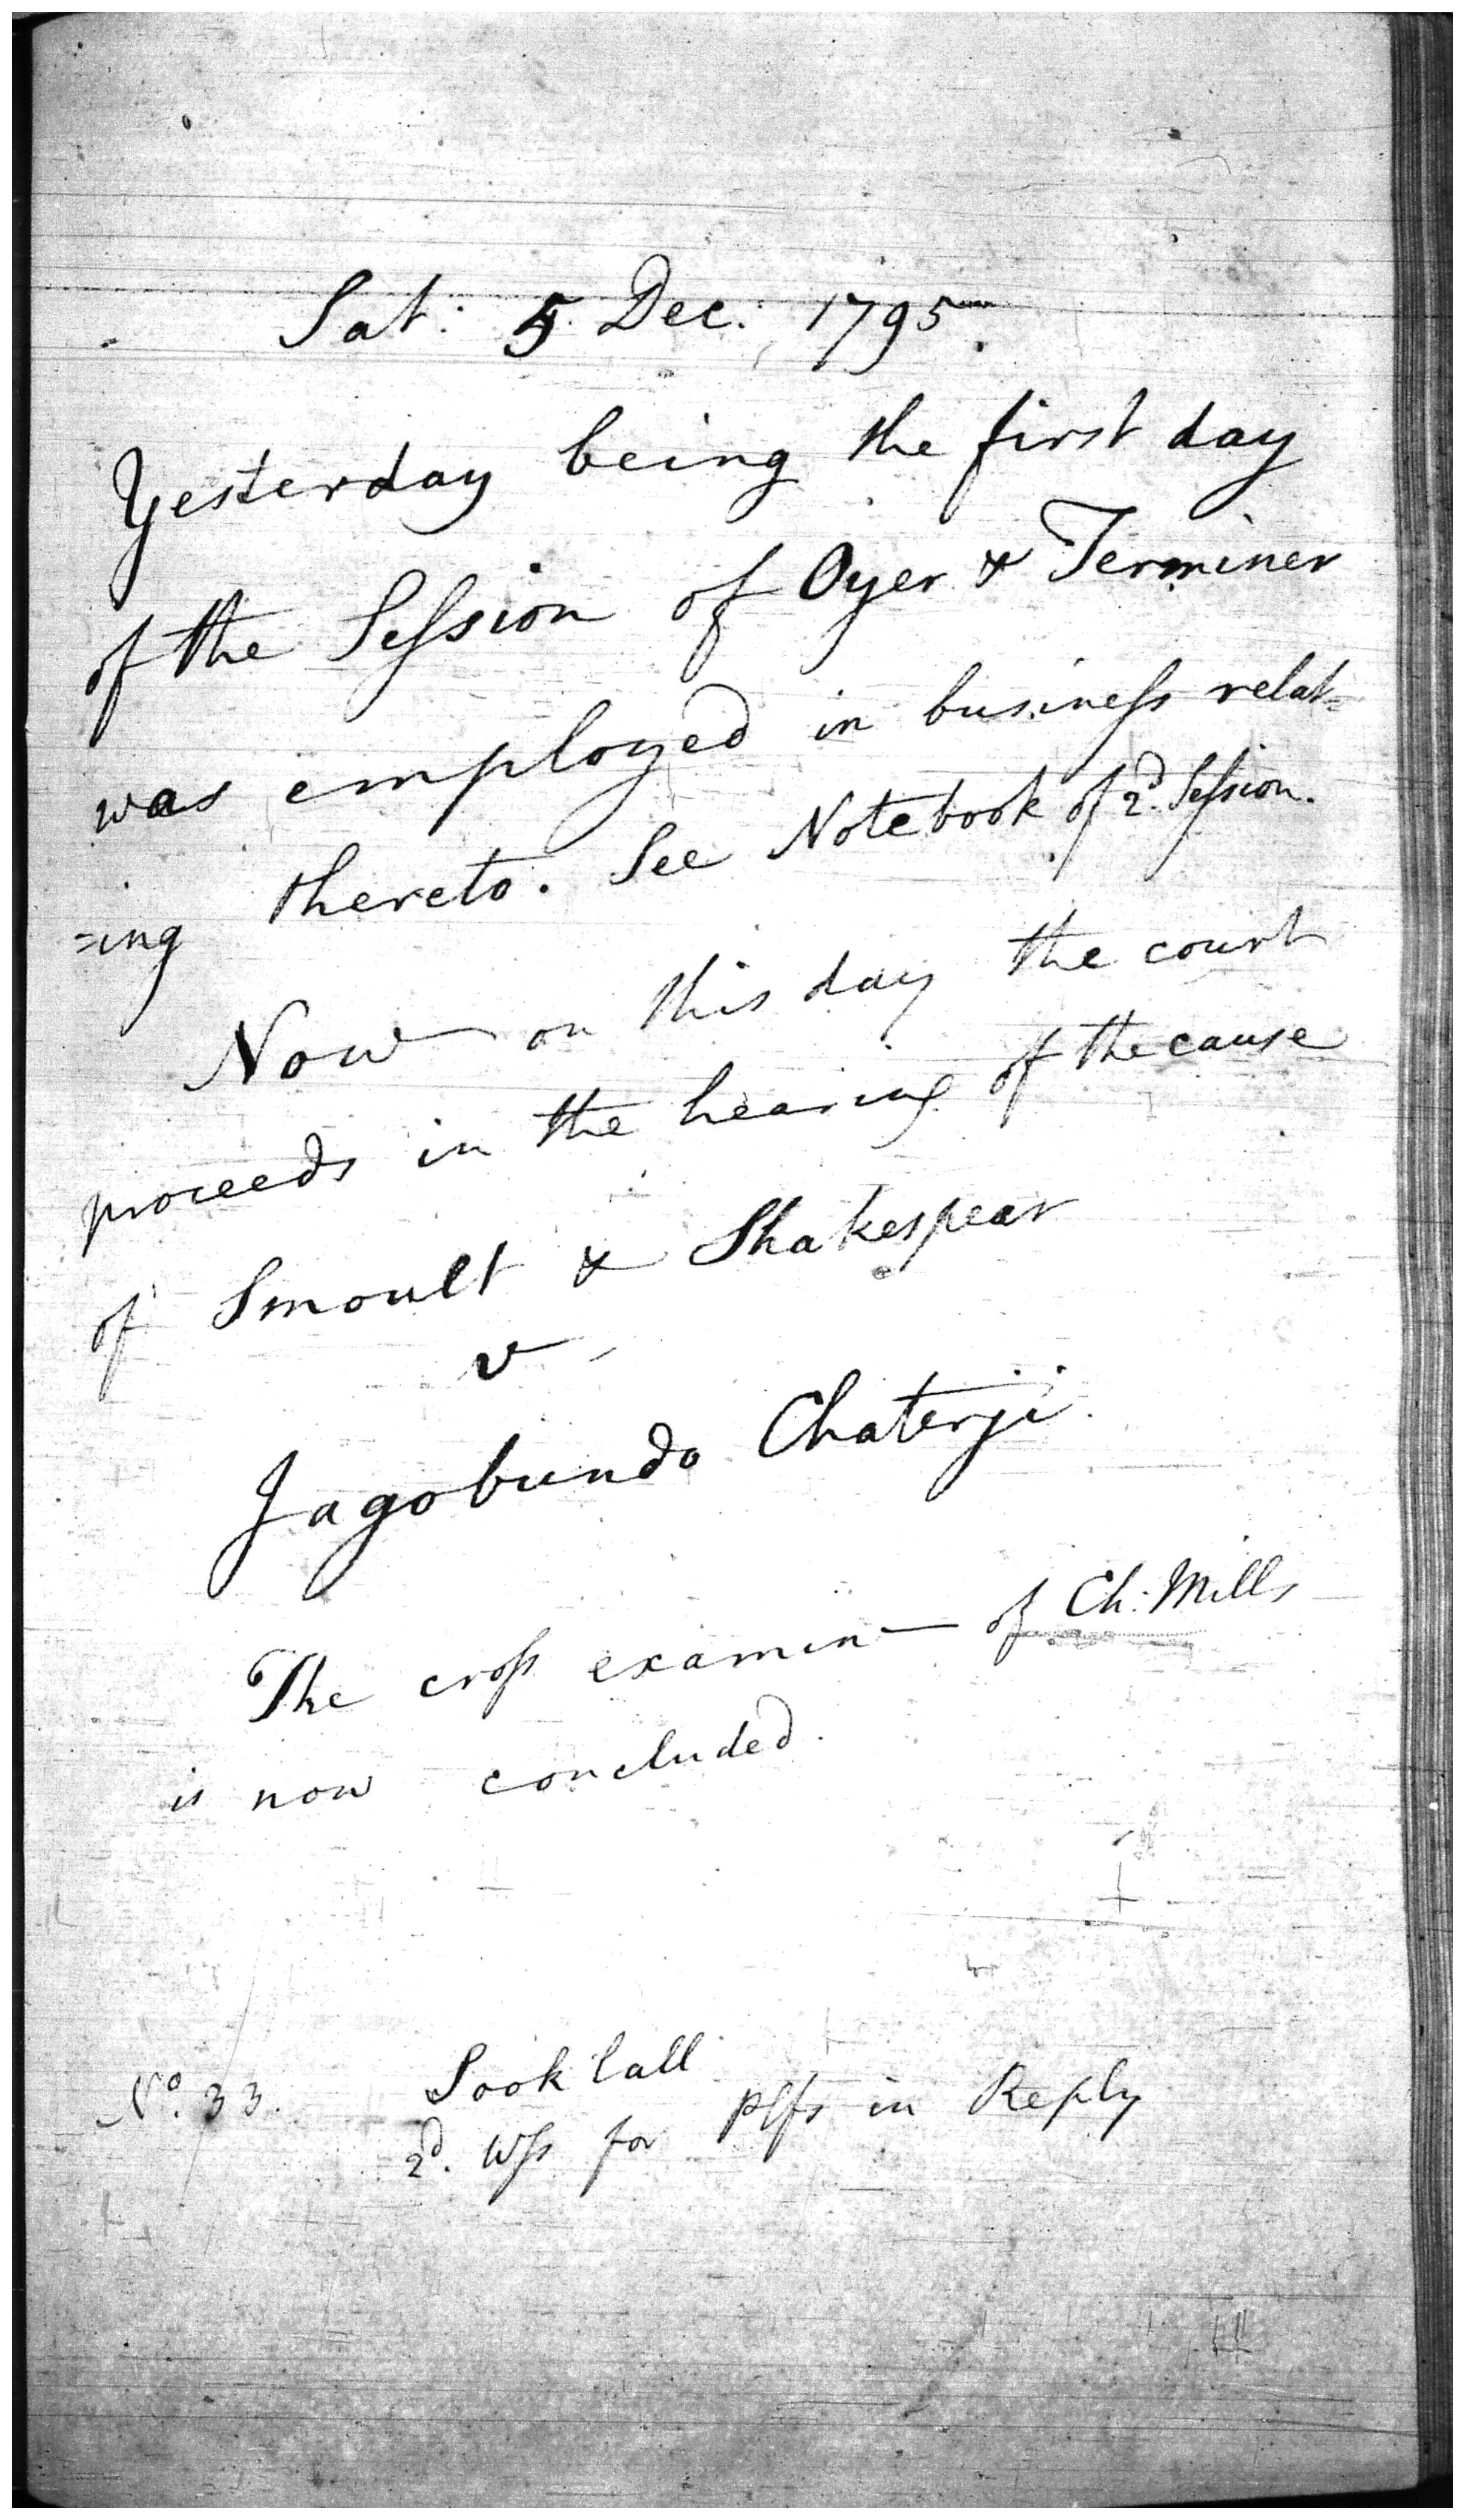 Sat: 5. Dec: 1795
Yesterday being the first day
of the Seſsion of Oyer & Terminer
was employed in buſineſs relat=
=ing thereto. See Notebook of 2d. Seſsion.
Now on this day the court
proceeds in the hearing of the cause
of Smoult & Shakespear
v
Jagobundo Chaterji
The croſs examin— of Ch: Mills
is now concluded.
No. 33. Sook lall
2d. Wſs for plfs in Reply